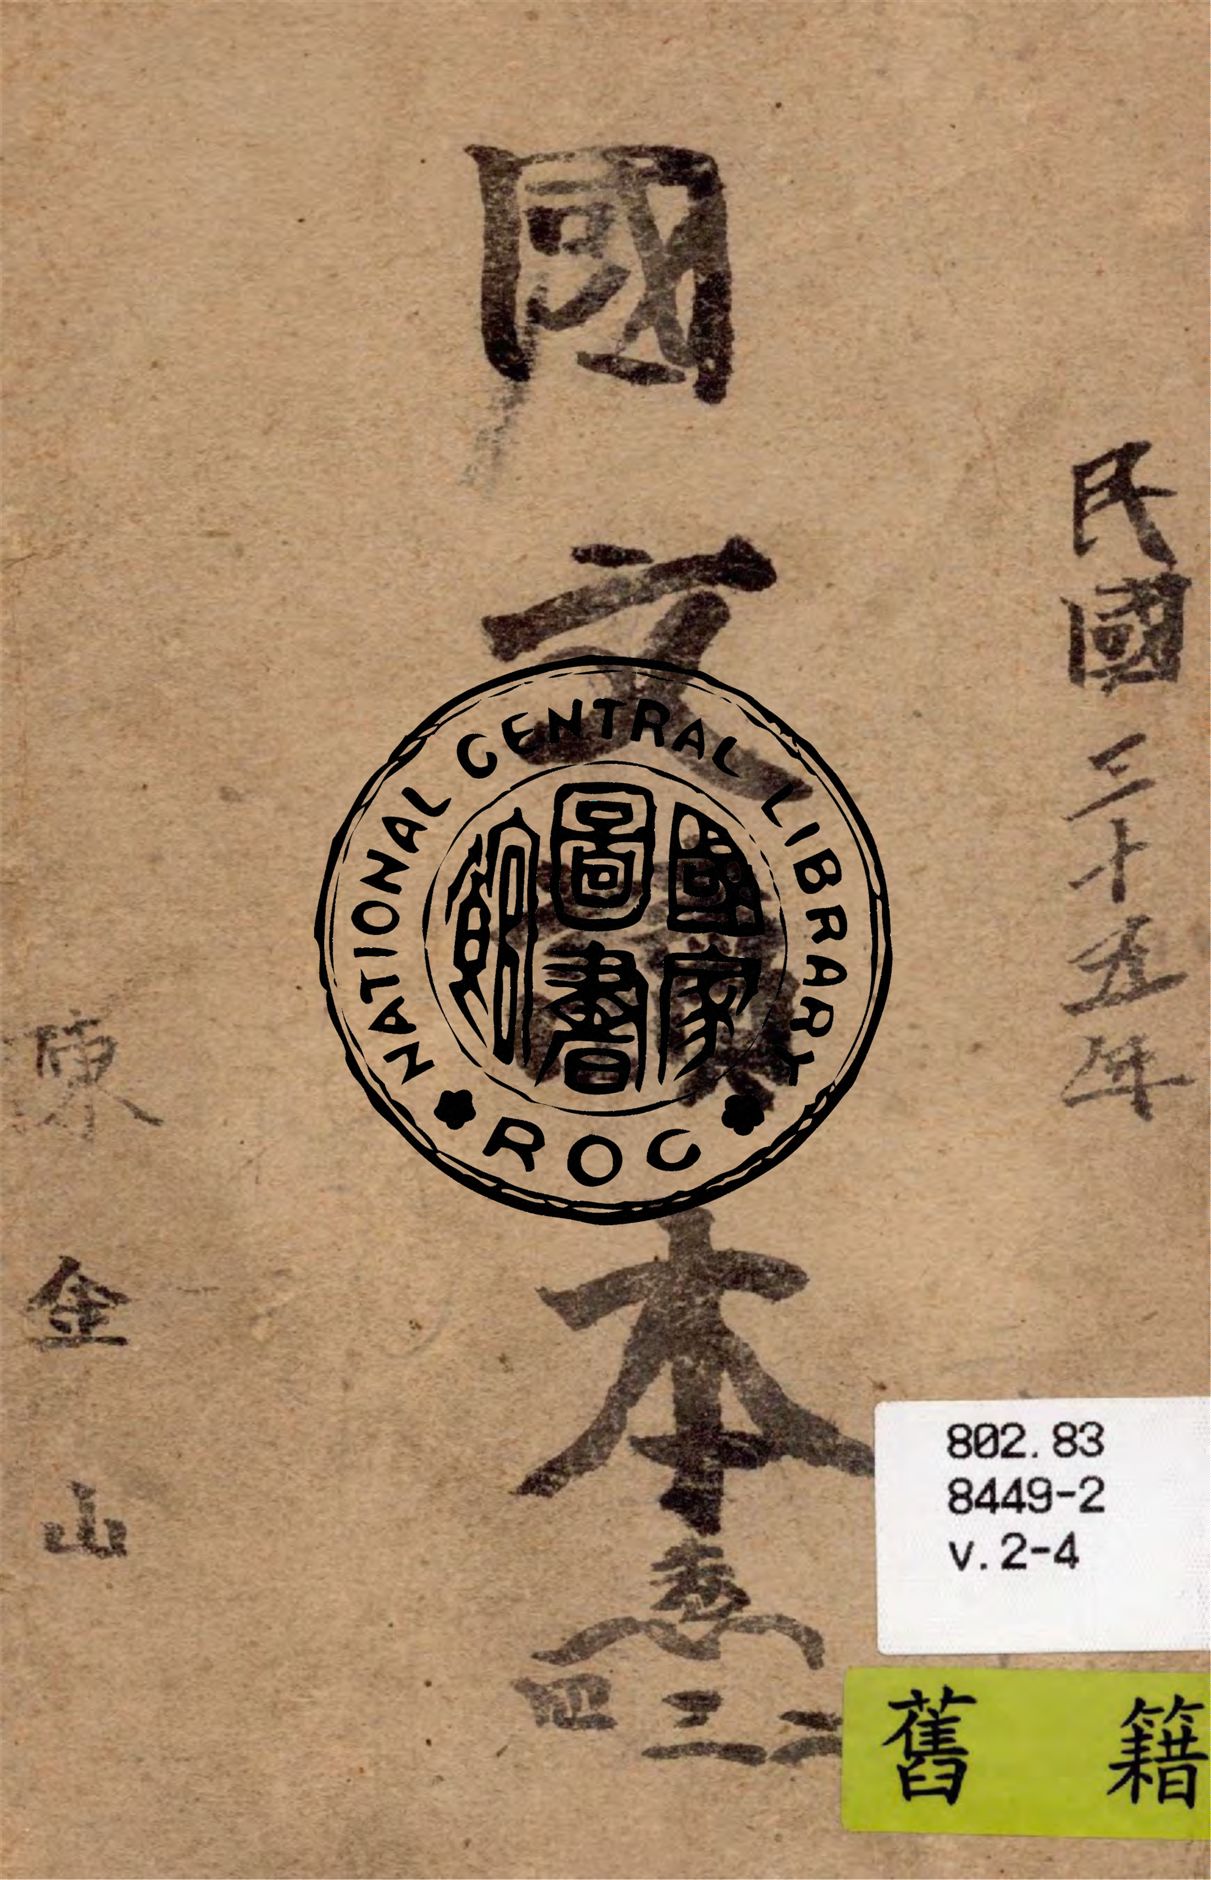 民國三十五年
國文讀本
卷
二
三
四
陳金山
NATIONAL CENTRAL LIBRARY
國家
圖書
館
ROC
802.83
8449-2
v.2-4
舊籍